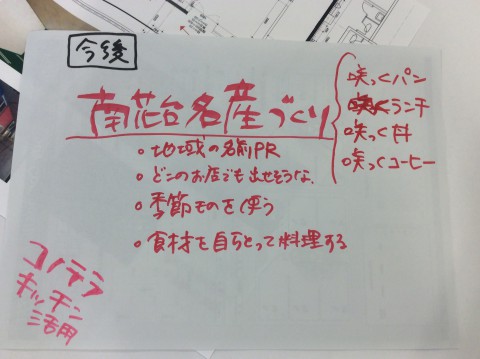 今後
南花台名産づくり
咲っくパン
咲っくランチ
咲っく丼
咲っくコーヒー
・地域の名前PR
・どこのお店でも出せそうな、
・季節ものを使う
・食材を自らとって料理する
コノテラ
キッチン
活用